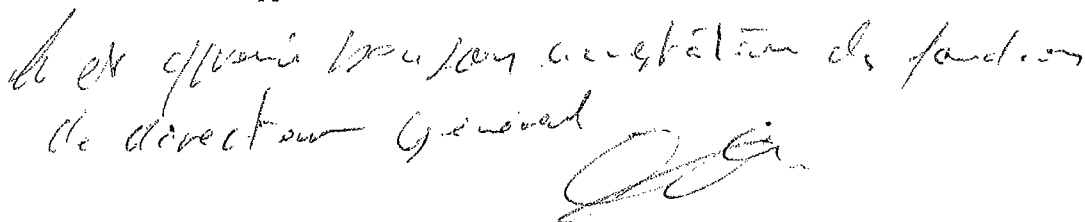 Lu et approuvé bon pour acceptation des fonctions
de directeur Général